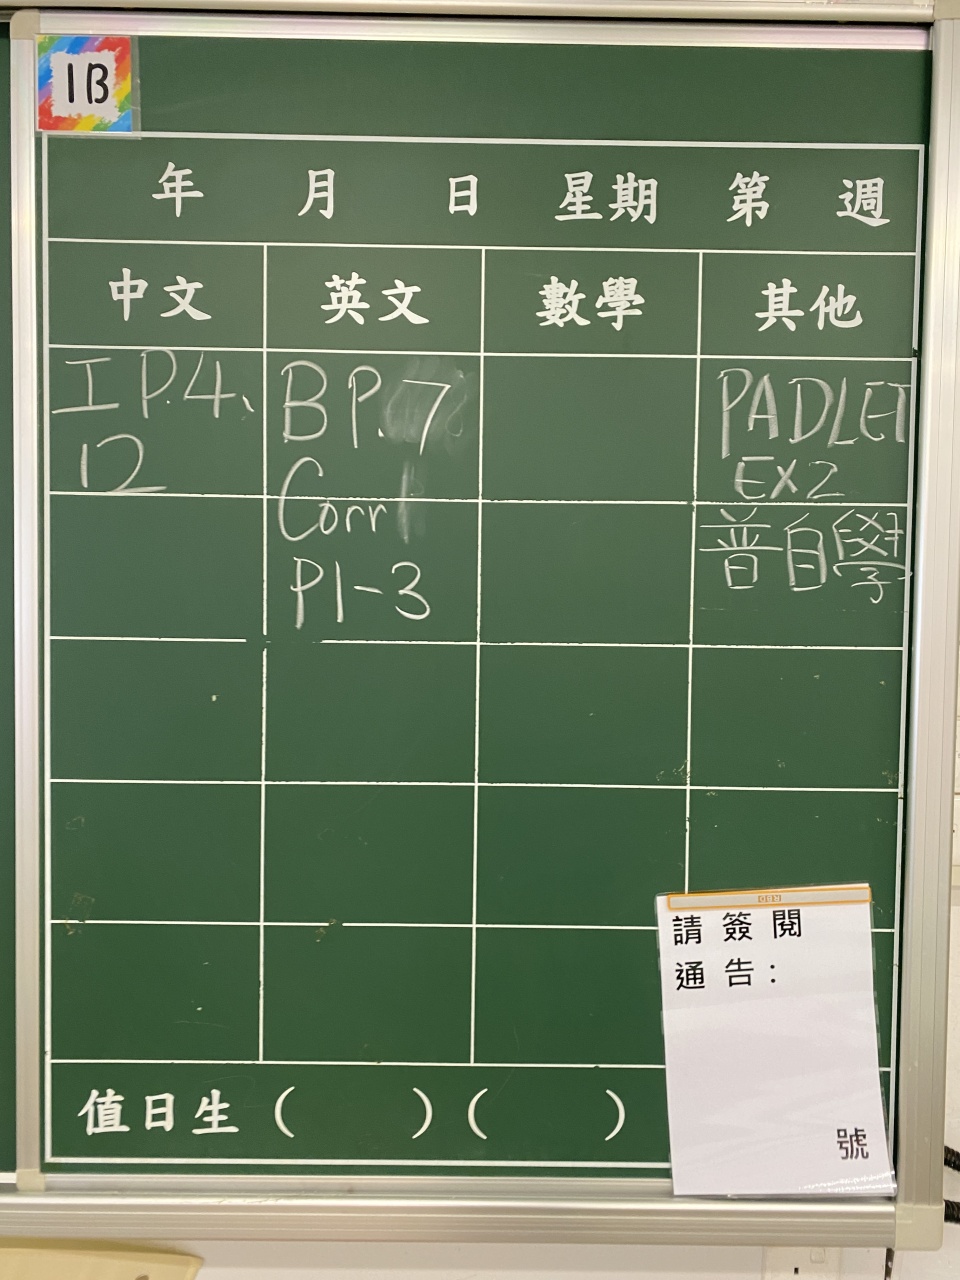 1B
年 月 日 星期 第 週
中文 英文 數學 其他
I P.4、
12
B P.7
Corr
P1-3
PADLET
EX2
普自學
請簽閱
通告：
號
值日生 ( ) ( )